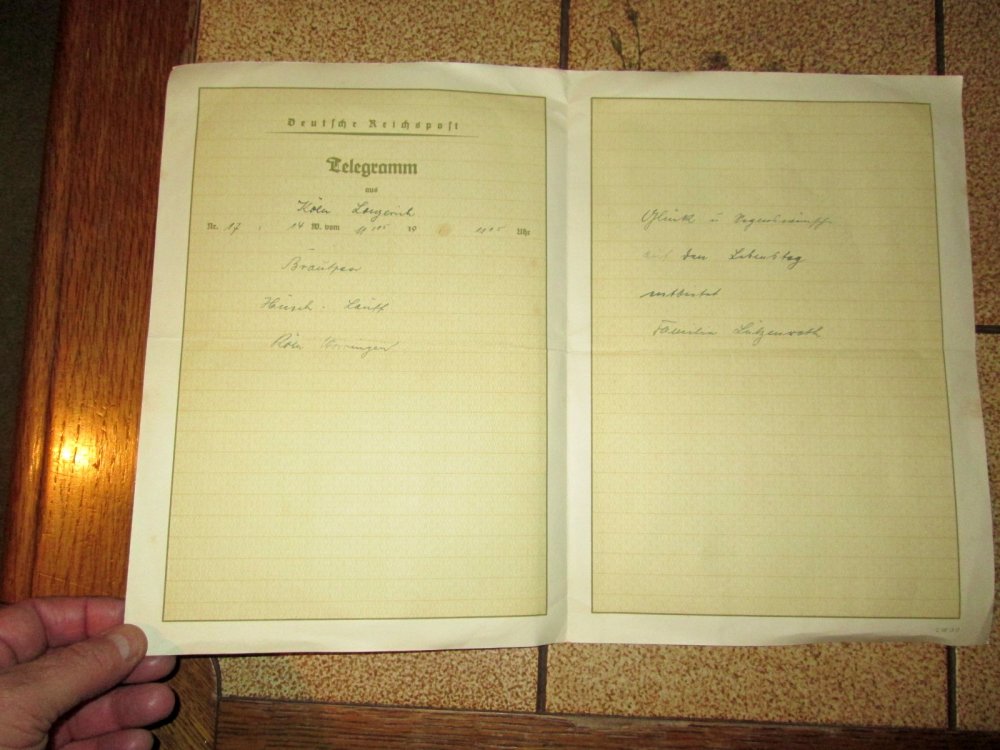 Deutsche Reichspost
Telegramm
aus
Köln Longerich
Nr. 17 14 W. vom 11 05 19 11 05 Uhr
Brautpaar
Hüsch - Lautt
Köln Worringen
Glück u Segenswünsche
auf den Lebenstag
entbietet
Familie Lützenrath